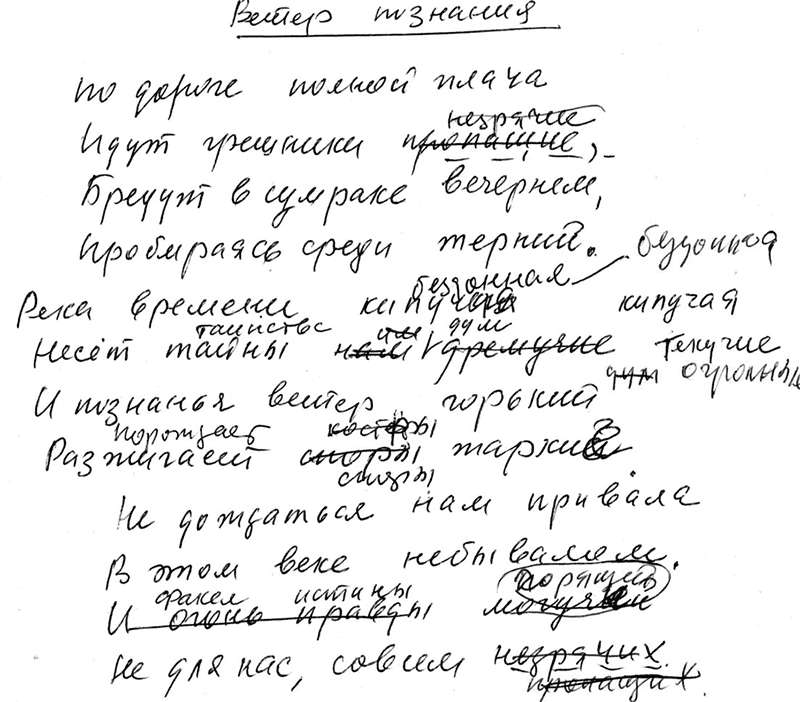 Ветер познания
По дороге полной плача
незрячие
Идут грешники пропащие,
Бредут в сумраке вечернем,
Пробираясь среди терний.
бездонная бездонная
Река времени кипучая кипучая
таинства им дум
Несёт тайны нам дремучие текучие
дум огромных
И познанья ветер горький
порождает костры
Разжигает споры жаркие
споры
Не дождаться нам привала
В этом веке небывалом.
факел истины горящий
И огонь правды могучий
Не для нас, совсем незрячих.
пропащих.